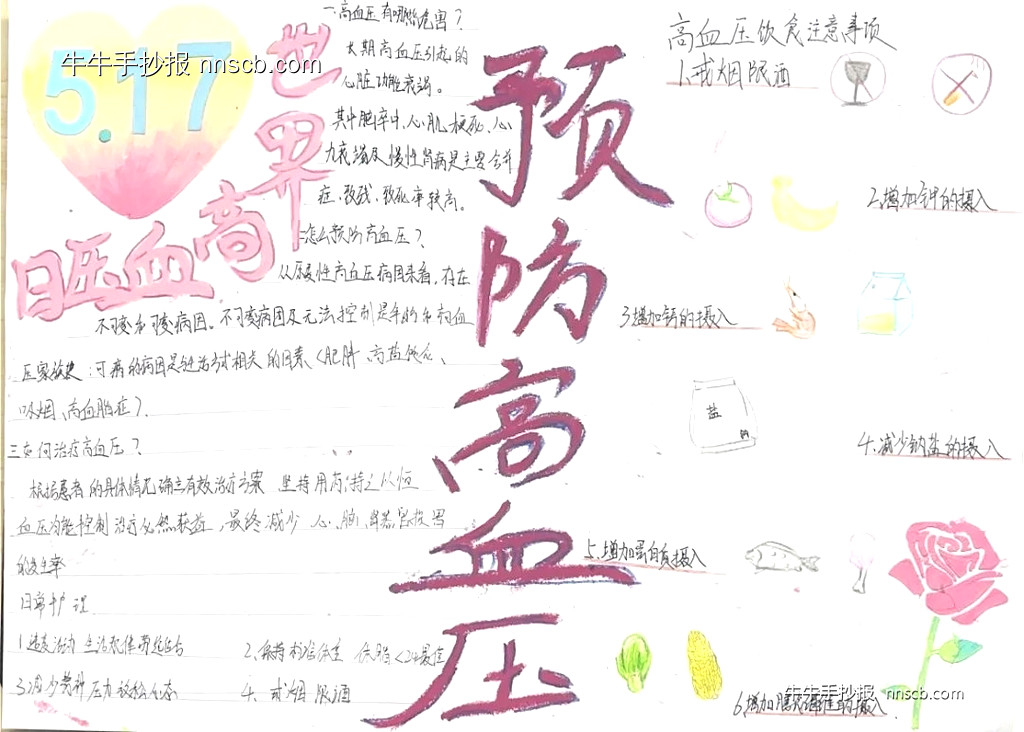 牛牛手抄报 nnscb.com
5.17
世界
高血压日
预防高血压
一.高血压有哪些危害?
长期高血压引起的
心脏功能衰竭。
其中脑卒中、心肌梗死、心
力衰竭及慢性肾病是主要合并
症,致残、致死率较高。
二怎么预防高血压?
从原发性高血压病因来看,存在
不可变和可变病因。不可变病因及无法控制是年龄和高血
压家族史:可变的病因是与生活方式相关的因素(肥胖、高盐饮食、
吸烟、高血脂症).
三如何治疗高血压?
根据患者的具体情况确立有效治疗方案 坚持用药,持之以恒
血压均能控制治疗必然获益,最终减少 心、脑、肾
的发生率
日常护理
1适度活动 生活规律劳逸结合
2、保持标准体重
3减少精神压力 放松心态
4、戒烟限酒
高血压饮食注意事项
1.戒烟限酒
2.增加钾的摄入
3增加钙的摄入
盐
4.减少钠盐的摄入
5.增加蛋白质摄入
6.增加膳食纤维的摄入
牛牛手抄报 nnscb.com